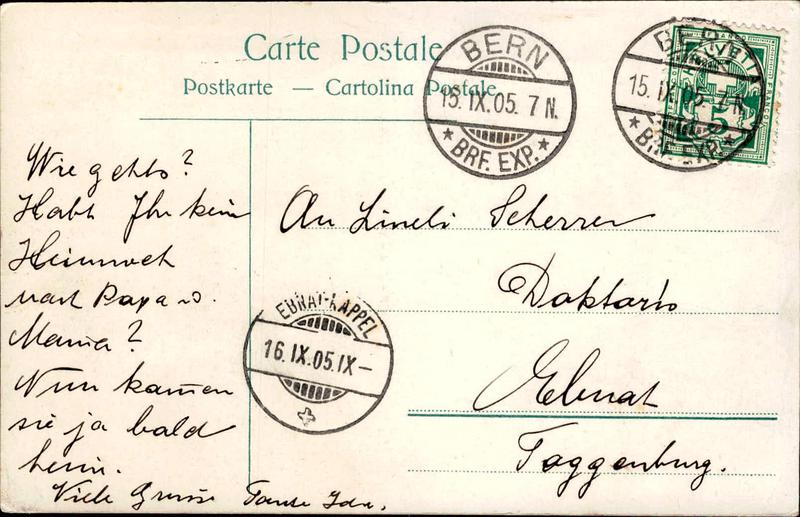 Carte Postale
Postkarte — Cartolina Postale
BERN
15.IX.05. 7 N.
* BRF. EXP. *
BERN
15.IX.05. 7 N.
* BRF. EXP. *
HELVETIA
5
Wie gehts?
Habt Ihr kein
Heimweh
nach Papa u.
Mama?
Nun kommen
sie ja bald
heim.
Viele Grüsse Tante Ida.
An Lineli Scherrer
Doktaris
Ebnat
Toggenburg.
EBNAT-KAPPEL
16.IX.05.IX—